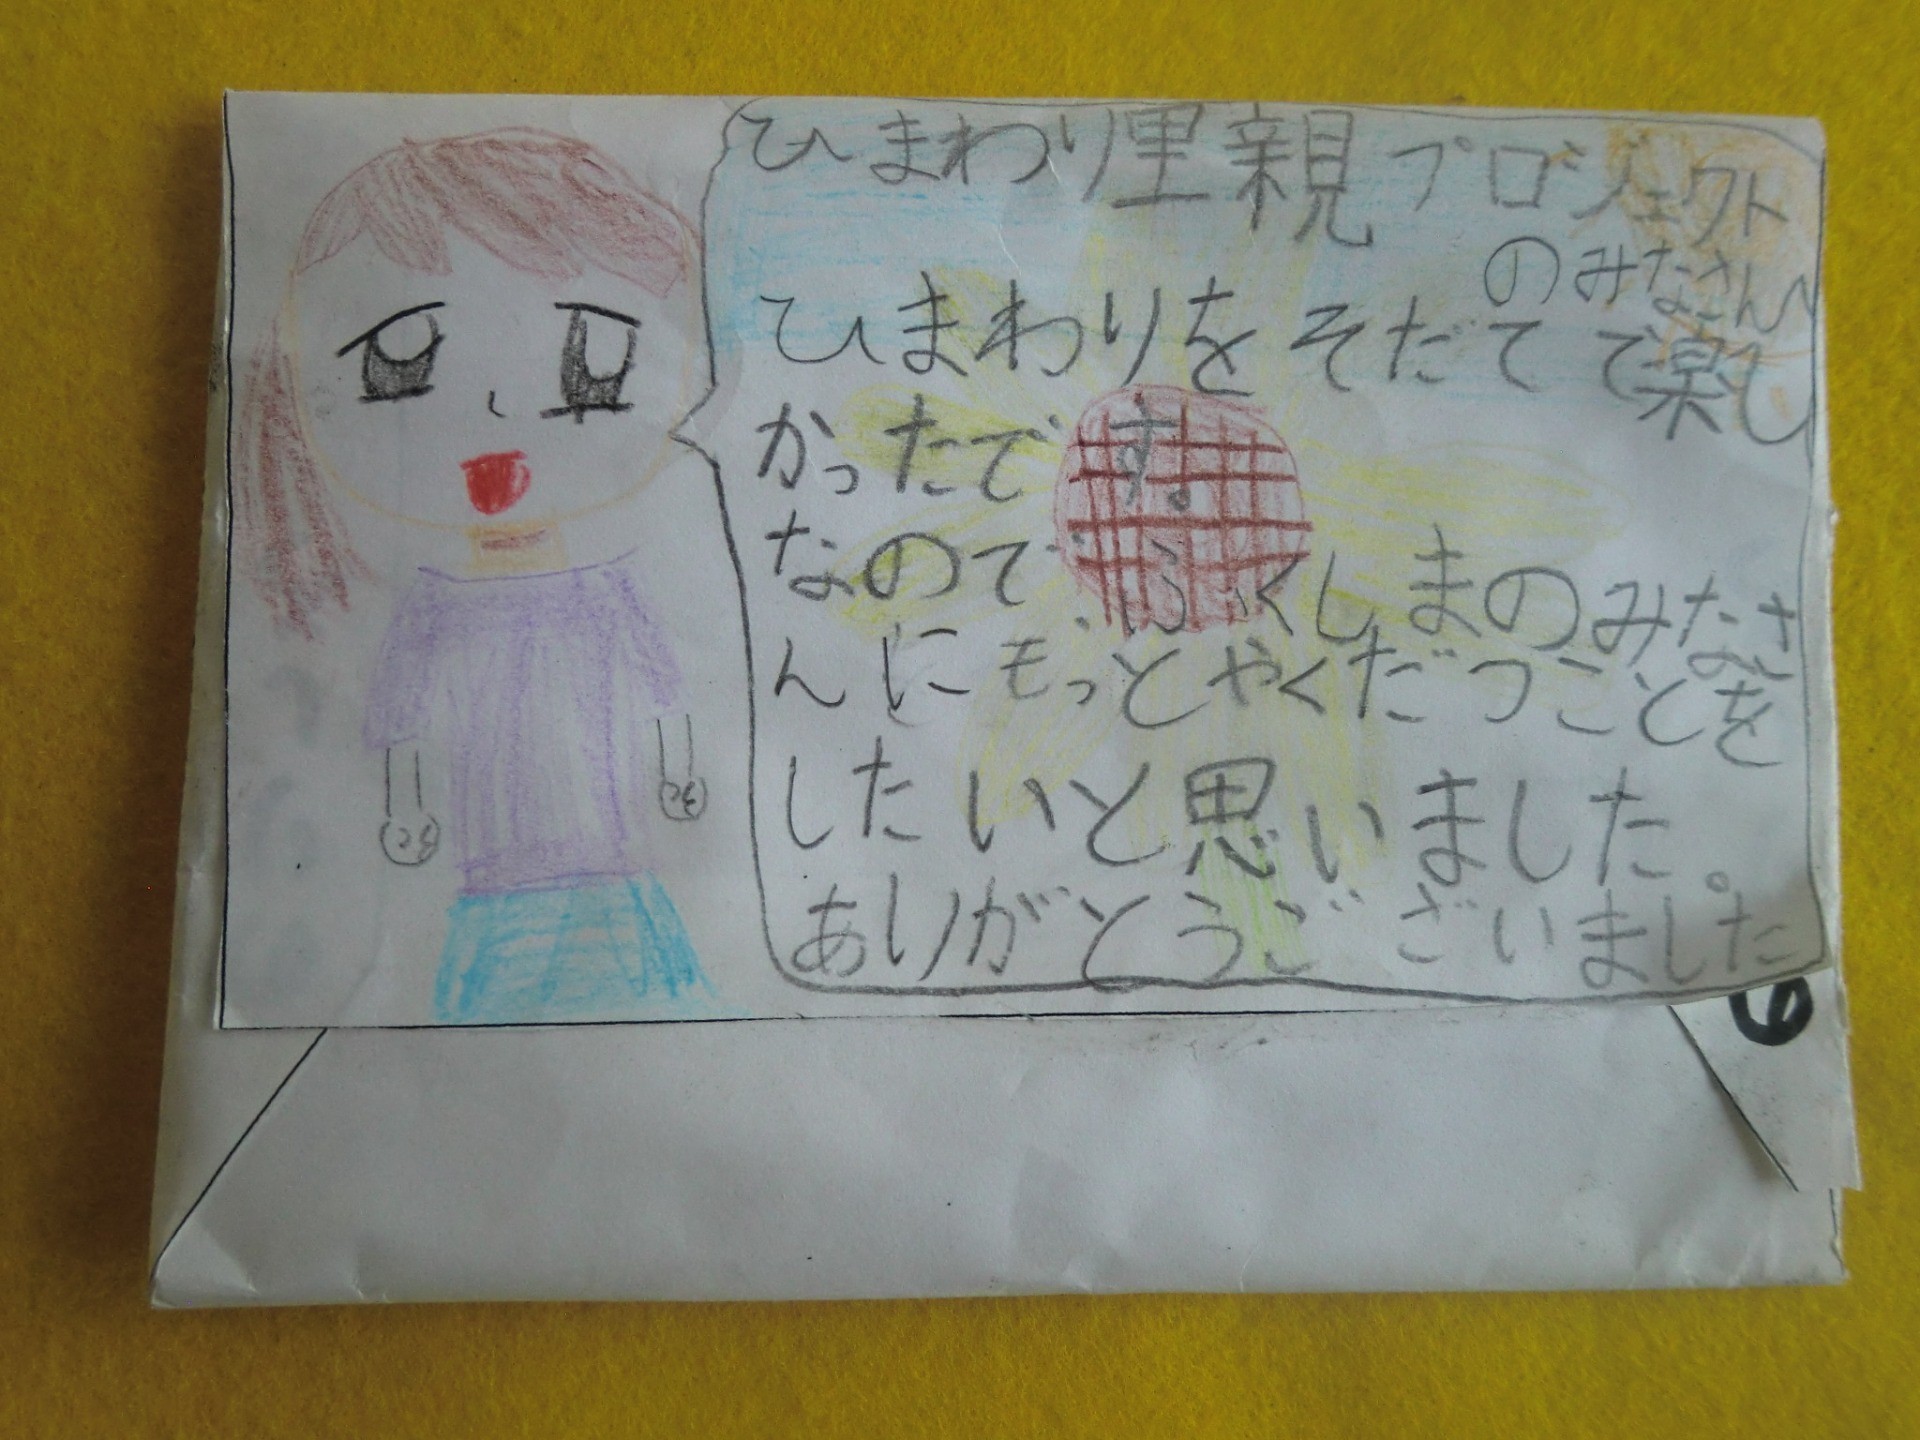 ひまわり里親プロジェクト
のみなさん
ひまわりをそだてて楽し
かったです。
なのでふくしまのみなさ
んにもっとやくだつことを
したいと思いました。
ありがとうございました
6